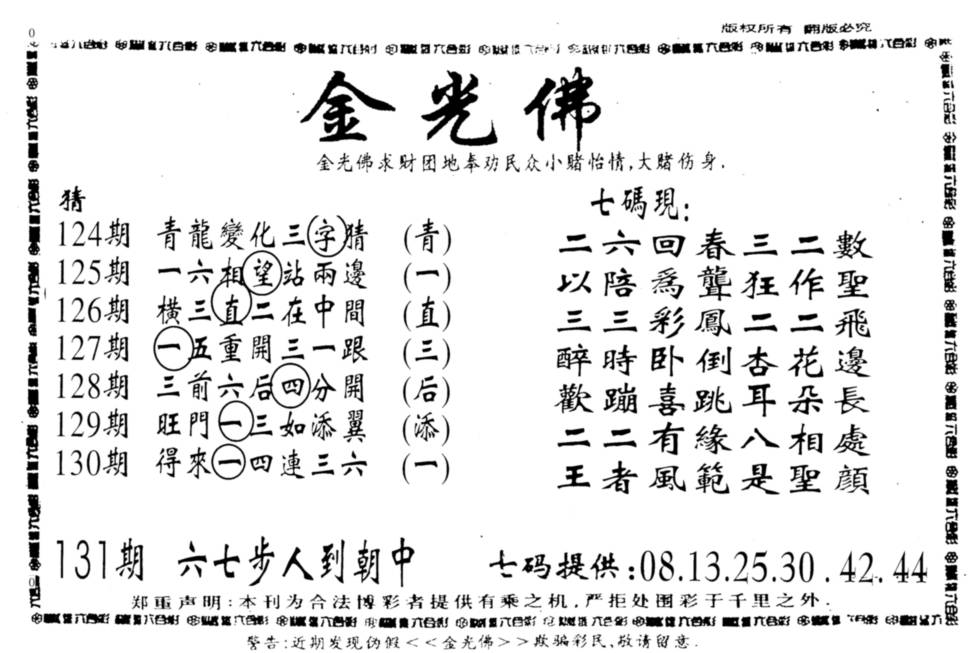 版权所有 翻版必究
金光佛
金光佛求财团地奉劝民众小赌怡情,大赌伤身.
猜
124期 青龍變化三字猜 (青)
125期 一六相望站兩邊 (一)
126期 橫三直二在中間 (直)
127期 一五重開三一跟 (三)
128期 三前六后四分開 (后)
129期 旺門一三如添翼 (添)
130期 得來一四連三六 (一)
七碼現:
二六回春三二數
以陪爲聾狂作聖
三三彩鳳二二飛
醉時卧倒杏花邊
歡蹦喜跳耳朵長
二二有緣八相處
王者風範是聖顔
131期 六七步人到朝中 七码提供:08.13.25.30.42.44
郑重声明:本刊为合法博彩者提供有乘之机,严拒处围彩于千里之外.
警告:近期发现伪假<<金光佛>>欺骗彩民,敬请留意.